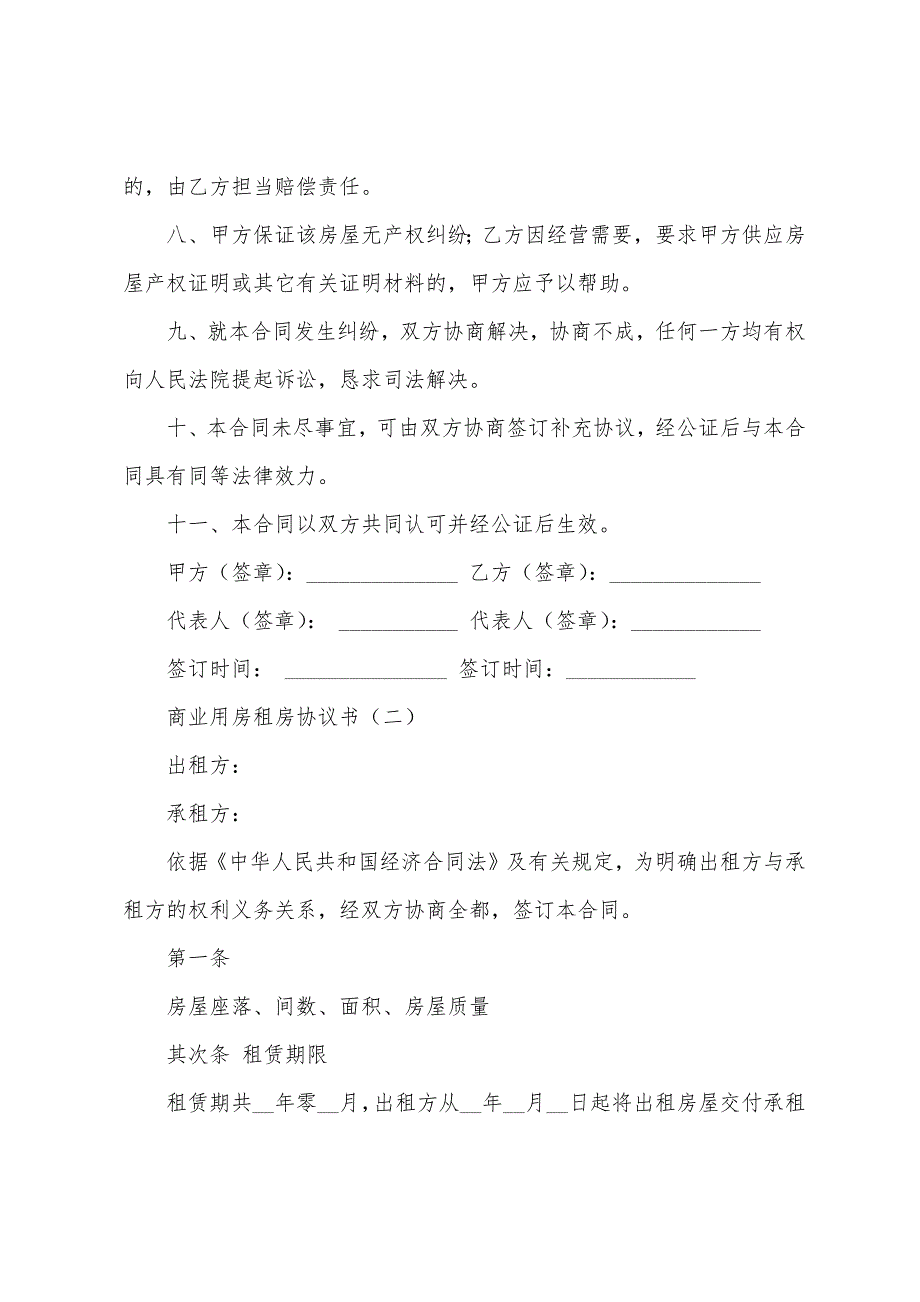 的，由乙方担当赔偿责任。
八、甲方保证该房屋无产权纠纷；乙方因经营需要，要求甲方供应房
屋产权证明或其它有关证明材料的，甲方应予以帮助。
九、就本合同发生纠纷，双方协商解决，协商不成，任何一方均有权
向人民法院提起诉讼，恳求司法解决。
十、本合同未尽事宜，可由双方协商签订补充协议，经公证后与本合
同具有同等法律效力。
十一、本合同以双方共同认可并经公证后生效。
甲方（签章）：______________ 乙方（签章）：______________
代表人（签章）： ___________ 代表人（签章）：____________
签订时间： _______________ 签订时间：____________
商业用房租房协议书（二）
出租方：
承租方：
依据《中华人民共和国经济合同法》及有关规定，为明确出租方与承
租方的权利义务关系，经双方协商全都，签订本合同。
第一条
房屋座落、间数、面积、房屋质量
其次条 租赁期限
租赁期共__年零__月,出租方从__年__月__日起将出租房屋交付承租